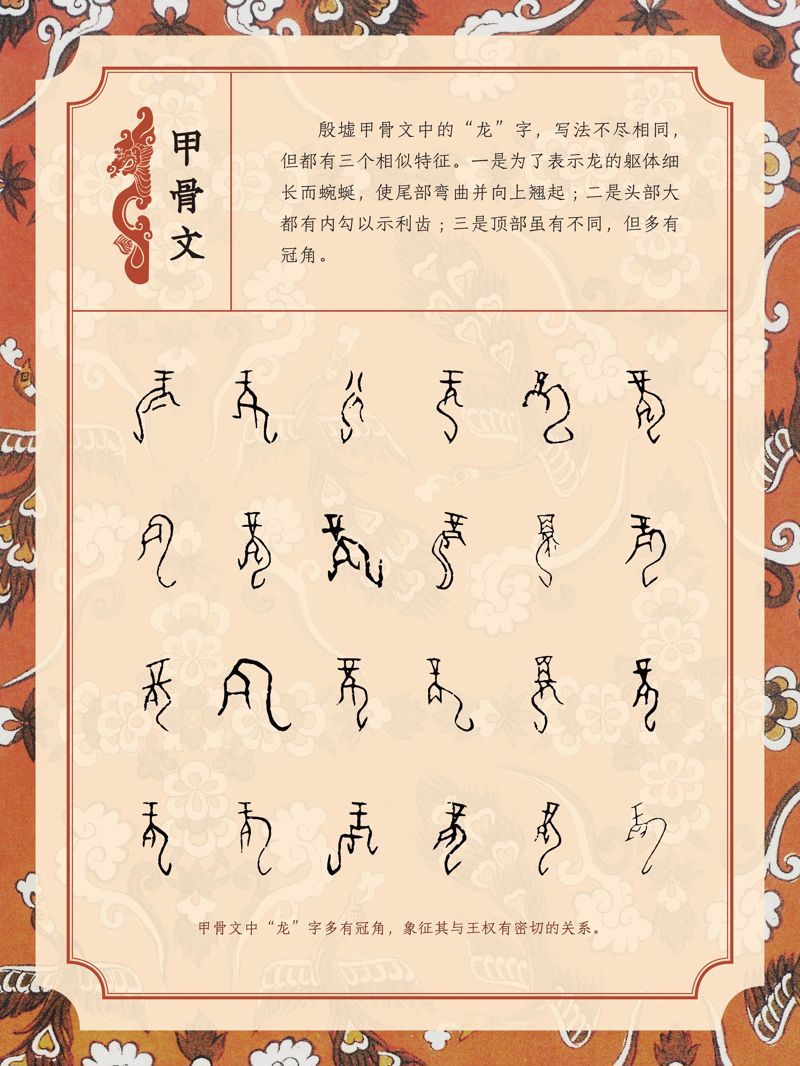 甲骨文
殷墟甲骨文中的“龙”字，写法不尽相同，
但都有三个相似特征。一是为了表示龙的躯体细
长而蜿蜒，使尾部弯曲并向上翘起；二是头部大
都有内勾以示利齿；三是顶部虽有不同，但多有
冠角。
甲骨文中“龙”字多有冠角，象征其与王权有密切的关系。